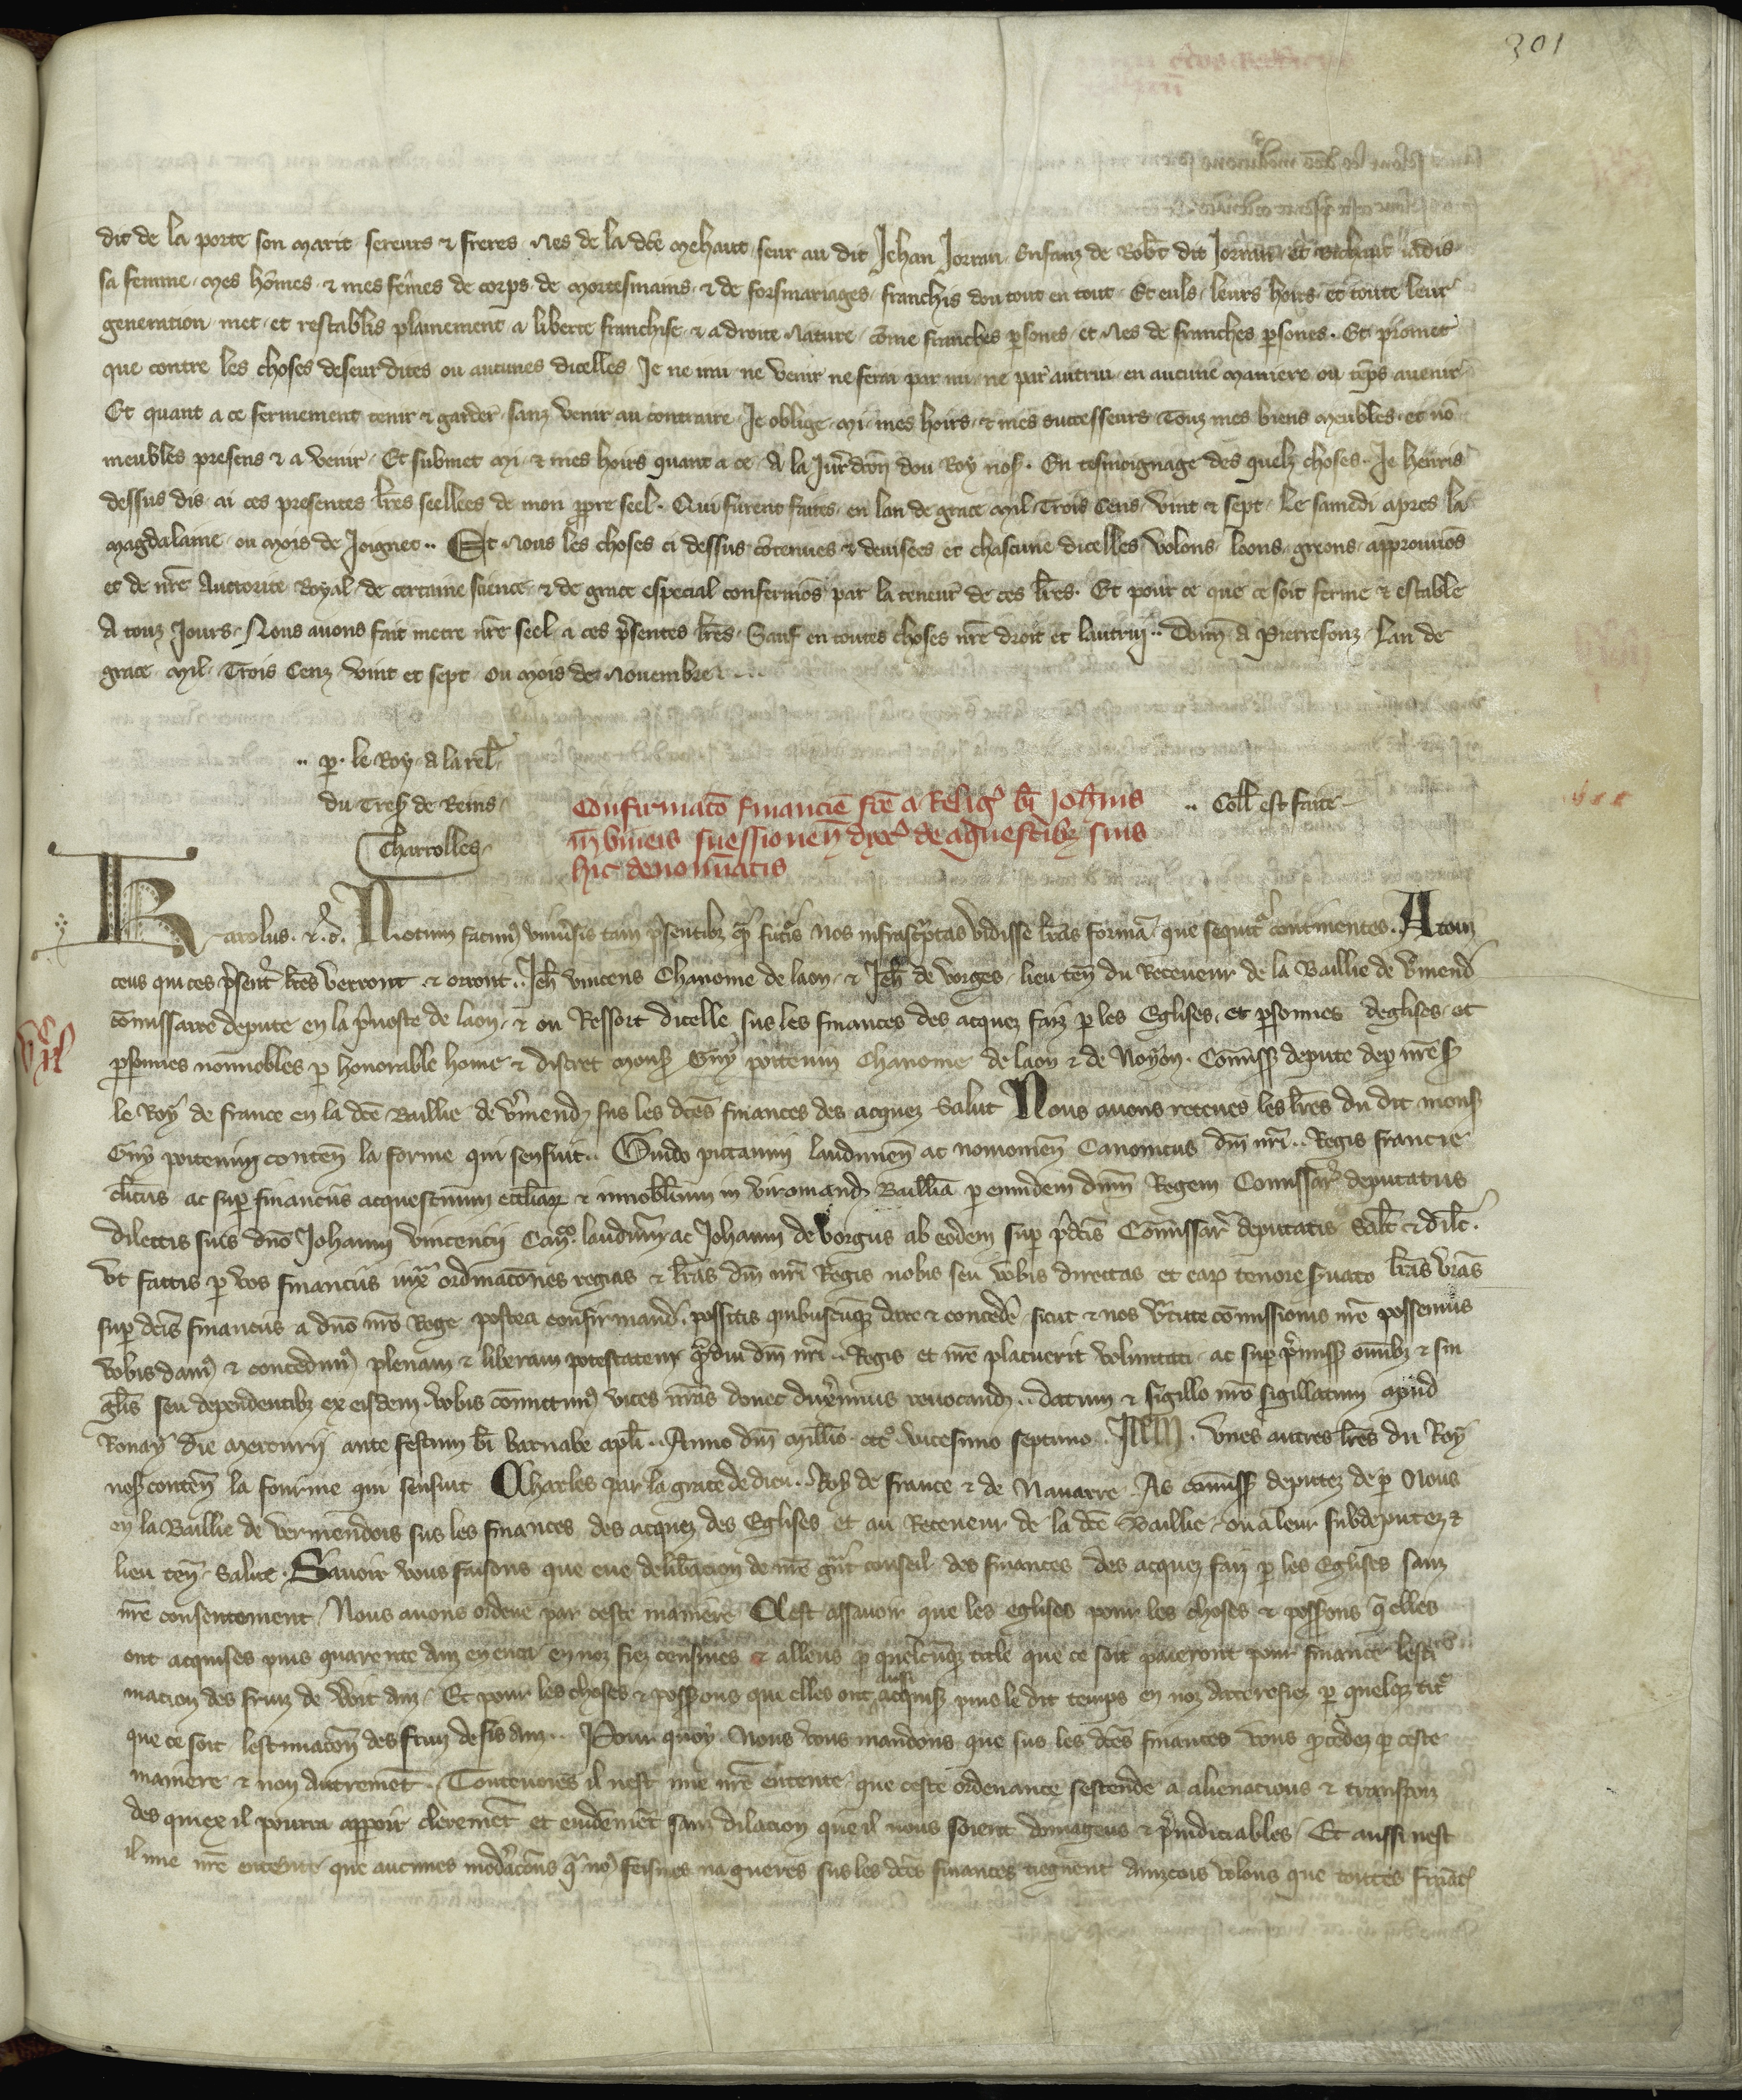 301
dit de la porte son marit sereurs & freres nes de la dce Mehaut seur au dit Jehan Jorran Enfanz de Robt dit Jorran et jadis
sa femme mes homes & mes femes de corps de mortesmains & de forsmariages franchis dou tout en tout Et euls leurs hoirs et toute leur
generation met et restablis plainement a liberte franchise & a droite nature come franches psones et nes de franches psones. Et promet
que contre les choses deseur dites ou aucunes dicelles Je ne venir ne ferai par mi ne par autrui en aucune maniere ou teps avenir
Et quant a ce fermement tenir & garder sanz venir au contraire Je oblige mi mes hoirs & mes successeurs Touz mes biens meubles et no
meubles presens & a venir Et submet mi & mes hoirs quant a ce A la Jurdcon dou Roy nos. En tesmoignage des quelz choses Je henris
dessus dis ai ces presentes lres seellees de mon ppre seel. Qui furent faites en lan de grace Mil Trois Cens vint & sept Le samedi apres la
magdalaine ou mois de Joignet.. Et Nous les choses ci dessus cotenues & devisees et chascune dicelles volons loons greons approuuos
et de nre Auctorite Royal de certaine science & de grace especial confermos par la teneur de ces lres. Et pour ce que ce soit ferme & estable
A touz Jours Nous auons fait metre nre seel a ces psentes lres Sauf en toutes choses nre droit et lautrui.. Donn a Pierrefonz Lan de
grace Mil Trois Cenz vint et sept ou mois de Nouembre
.. p. le Roy a la rel
du Tres de Reins
Charrolles
Confirmaco financie fce a Relig bi Johnis
in vineis suessionen de aquestibz suis
hic denominatis
.. Coll est faite
VIIc
Karolus. & d. Notum facim vniusis tam psentibz q futis Nos infrasciptas vidisse lras forma que sequit continentes. A touz
ceus qui ces psent lres verront & orront.. Jeh vincens Chanoine de laon & Jeh de vorges lieu ten du Receueur de la Baillie de vmend
comissaire depute en la puoste de laon & ou Ressort dicelle sus les finances des acquez faiz p les Eglises et psonnes deglises et
psonnes nonnobles p honorable home & discret mons Guy poitevin Chanoine de laon & de Noyon. Comiss depute dep nre s
le Roy de france en la dce Baillie de vmend sus les dces finances des acquez Salut Nous auons receues les lres du dit mons
Guy poitevin conten la forme qui sensuit.. Guido pictauini laudunen ac nouiomen Canonicus dni nri.. Regis francie
clicus ac sup financiis acquestuum eccliaz & innobilium in viromand Baillia p eundem dnm Regem Comissar deputatus
dilectis suis dno Johanni vincencii Cano laudun ac Johanni de vorgiis ab eodem sup pdcis Comissar deputatis Salt & dilc.
Vt factis p vos financiis iux ordinacones regias & lras dni nri Regis nobis seu vobis directas et eap tenore suato lras vras
sup dcis financiis a dno nro Rege postea confirmand possitis quibuscuq dare & concede sicut & nos vtute comissionis nre possemus
vobis dam & concedim plenam & liberam potestatem qdiu dni nri.. Regis et nre placuerit voluntati ac sup pmiss omibz & sin
glis seu dependentibz ex eisdem vobis comittim vices nras donec duximus reuocand.. datum & sigillo nro sigillatum apud
Ronay die mercurii ante festum bi barnabe apli.. Anno dni millio ccc vicesimo septimo. Item. vnes autres lres du Roy
nos conten la fourme qui sensuit Charles par la grace de dieu. Roy de france & de Nauarre. As comiss deputez de p Nous
en la Baillie de vermendois sus les finances des acquez des Eglises et au Receueur de la dce Baillie ou a leur subdeputez &
lieu ten Salut. Sauoir vous faisons que eue delibacion de nre gnt conseil des finances des acquez faiz p les Eglises sanz
nre consentement Nous auons ordene par ceste maniere Cest assauoir que les eglises pour les choses & possons q elles
ont acquises puis quarente anz en enca en noz fiez censiues & alleus p quelcuq title que ce soit paieront pour finance lesti
macion des fruiz de voit anz Et pour les choses & possons que elles ont aussi acquis puis le dit temps en noz arrerefiez p quelq tit
que ce soit lestimacon des fruiz de sis anz.. Pour quoy Nous vous mandons que sus les dces finances vous pcedez p ceste
maniere & non autremet. Touteuoies il nest mie nre entente que ceste ordenance sestende a alienacions & transpoz
des quiex il pourra apparoir cleremet et euidemet sanz dilacion que il nous soient domageus & piudiciables Et aussi nest
il mie nre entente que aucunes modacons q no feismes na gueres sus les dces finances tiegnent ainzcois volons que toutes finac